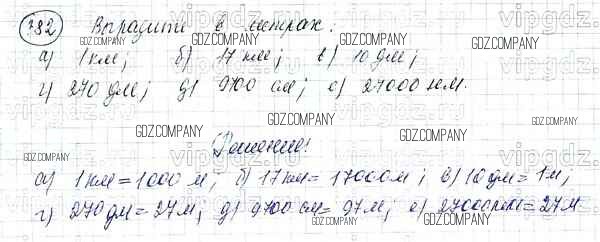 782 Выразите в метрах:
а) 1 км; б) 17 км; в) 10 дм;
г) 270 дм; д) 9700 см; е) 27000 мм.
Решение:
а) 1 км = 1000 м; б) 17 км = 17000 м; в) 10 дм = 1 м;
г) 270 дм = 27 м; д) 9700 см = 97 м; е) 27000 мм = 27 м